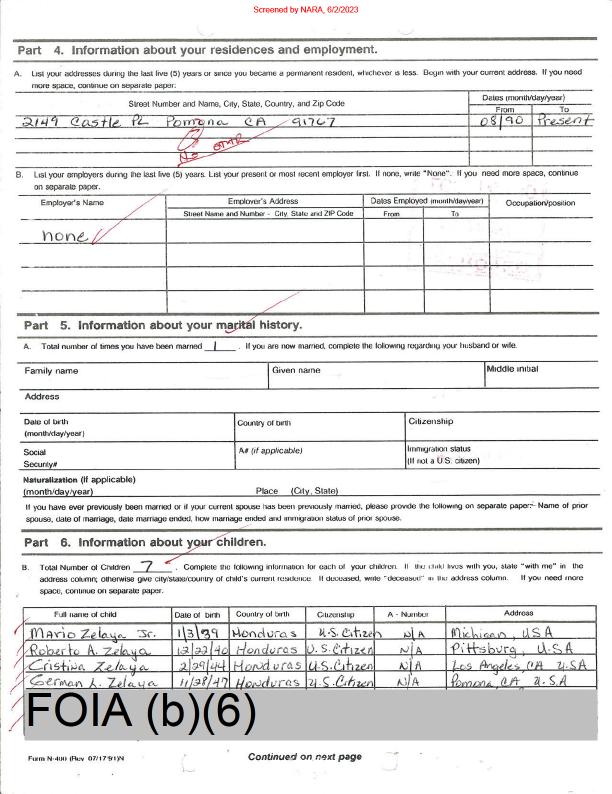 Screened by NARA, 6/2/2023
Part 4. Information about your residences and employment.
A. List your addresses during the last five (5) years or since you became a permanent resident, whichever is less. Begin with your current address. If you need
more space, continue on separate paper:
Street Number and Name, City, State, Country, and Zip Code
Dates (month/day/year)
From To
2149 Castle PL Pomona CA 91767 08/90 Present
No OMR
B. List your employers during the last five (5) years. List your present or most recent employer first. If none, write "None". If you need more space, continue
on separate paper.
Employer's Name Employer's Address Dates Employed (month/day/year) Occupation/position
Street Name and Number - City, State and ZIP Code From To
none
Part 5. Information about your marital history.
A. Total number of times you have been married 1 . If you are now married, complete the following regarding your husband or wife.
Family name Given name Middle initial
Address
Date of birth Country of birth Citizenship
(month/day/year)
Social A# (if applicable) Immigration status
Security# (If not a U.S. citizen)
Naturalization (If applicable)
(month/day/year) Place (City, State)
If you have ever previously been married or if your current spouse has been previously married, please provide the following on separate paper: Name of prior
spouse, date of marriage, date marriage ended, how marriage ended and immigration status of prior spouse.
Part 6. Information about your children.
B. Total Number of Children 7 . Complete the following information for each of your children. If the child lives with you, state "with me" in the
address column; otherwise give city/state/country of child's current residence. If deceased, write "deceased" in the address column. If you need more
space, continue on separate paper.
Full name of child Date of birth Country of birth Citizenship A - Number Address
Mario Zelaya Jr. 1/3/39 Honduras U.S. Citizen N/A Michigan, USA
Roberto A. Zelaya 12/22/40 Honduras U.S. Citizen N/A Pittsburg, U.S.A
Cristina Zelaya 2/29/44 Honduras U.S. Citizen N/A Los Angeles, CA U.S.A
German L. Zelaya 11/28/47 Honduras U.S. Citizen N/A Pomona, CA U.S.A
FOIA (b)(6)
Form N-400 (Rev 07/17/91)N Continued on next page